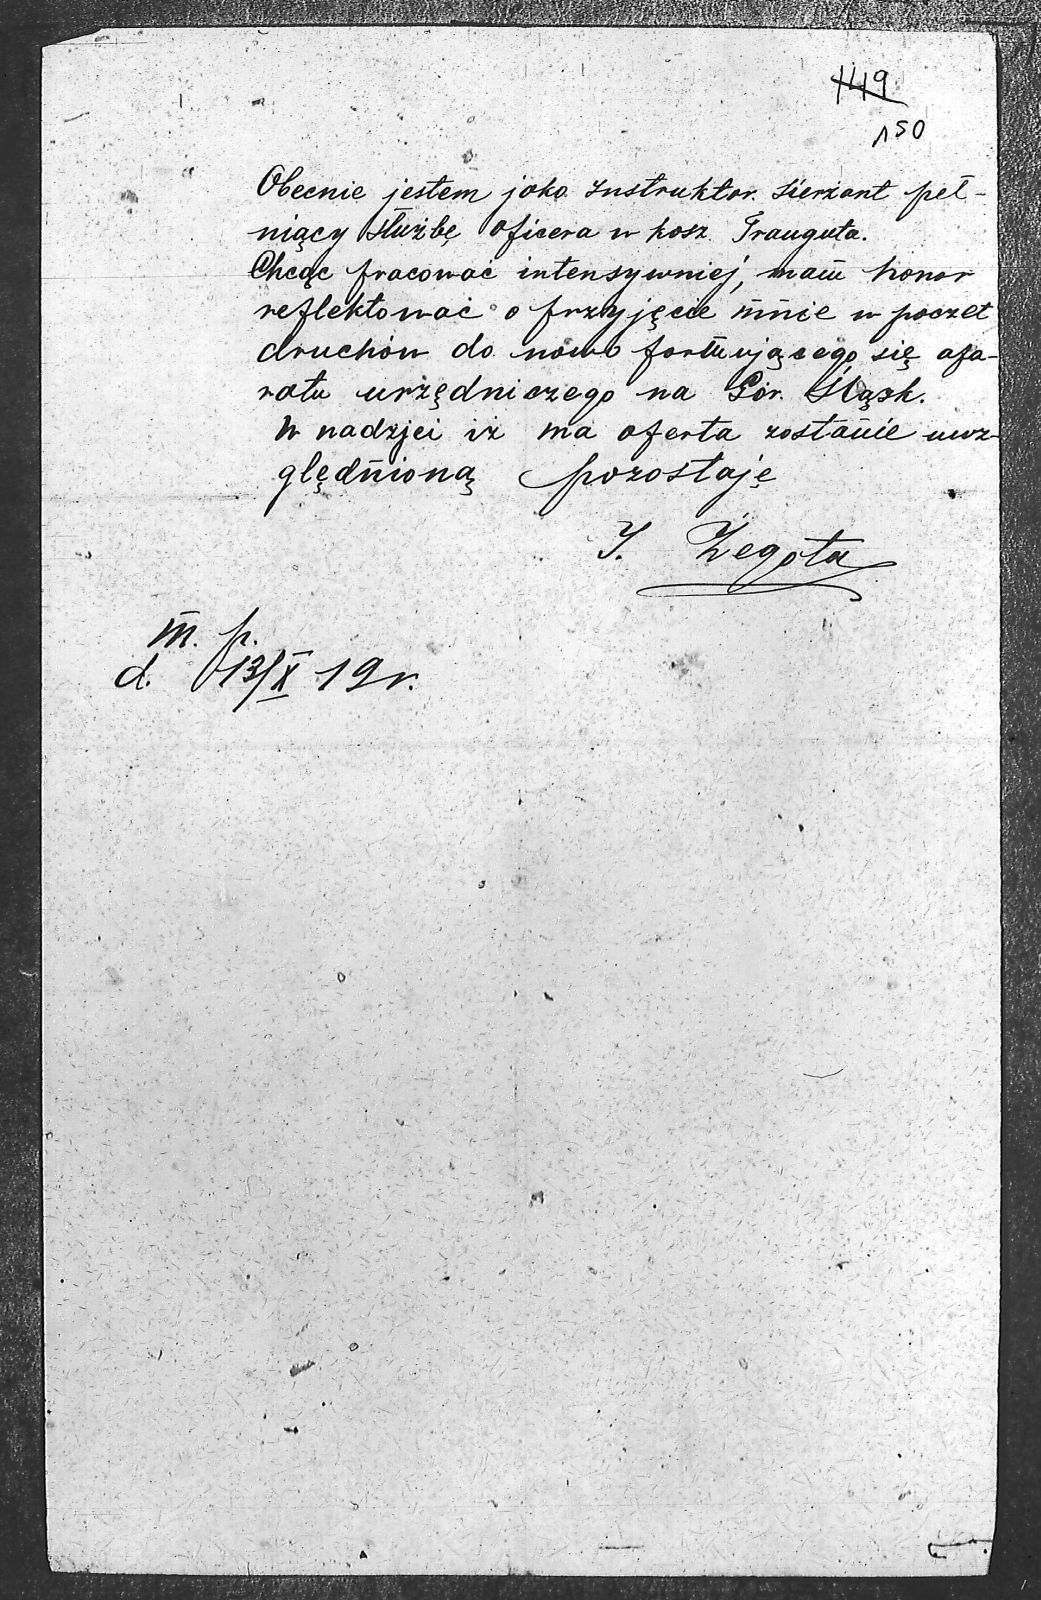 149
150
Obecnie jestem jako Instruktor. Sierżant peł-
niący służbę oficera w kosz. Trauguta.
Chcąc pracować intensywniej, mam honor
reflektować o przyjęcie mnie w poczet
druchów do nowo formującego się apa-
ratu urzędniczego na Gór. Śląsk.
W nadzjei iż ma oferta zostanie uwz-
ględnioną pozostaję
J. Żegota
m. p.
d. 13/X 19 r.